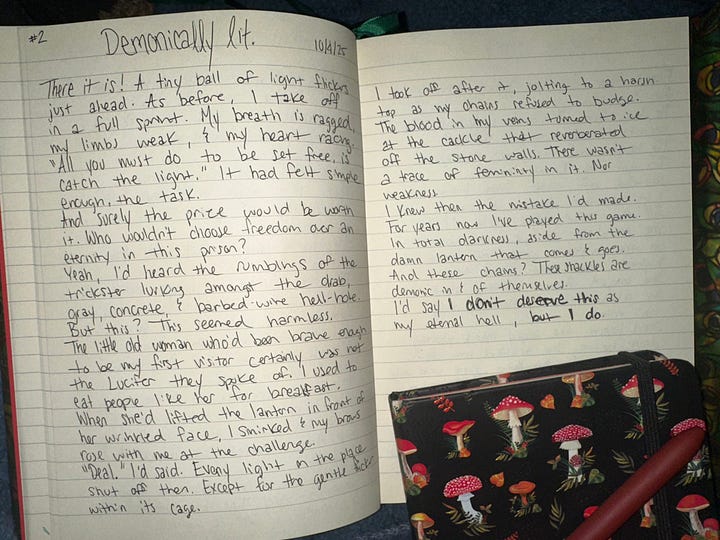 #2
Demonically lit.
10/4/25
There it is! A tiny ball of light flickers
just ahead. As before, I take off
in a full sprint. My breath is ragged,
my limbs weak, & my heart racing.
"All you must do to be set free, is
catch the light." It had felt simple
enough, the task.
And surely the price would be worth
it. Who wouldn't choose freedom over an
eternity in this prison?
Yeah, I'd heard the rumblings of the
trickster lurking amongst the drab,
gray, concrete, & barbed-wire hell-hole.
But this? This seemed harmless.
The little old woman who'd been brave enough
to be my first visitor certainly was not
the Lucifer they spoke of. I used to
eat people like her for breakfast.
When she'd lifted the lantern in front of
her wrinkled face, I smirked & my brows
rose with me at the challenge.
"Deal." I'd said. Every light in the place
shut off then. Except for the gentle flicker
within its cage.
I took off after it, jolting to a harsh
top as my chains refused to budge.
The blood in my veins turned to ice
at the cackle that reverberated
off the stone walls. There wasn't
a trace of femininity in it. Nor
weakness.
I knew then the mistake I'd made.
For years now I've played this game.
In total darkness, aside from the
damn lantern that comes & goes.
And these chains? These shackles are
demonic in & of themselves.
I'd say I don't deserve this as
my eternal hell, but I do.